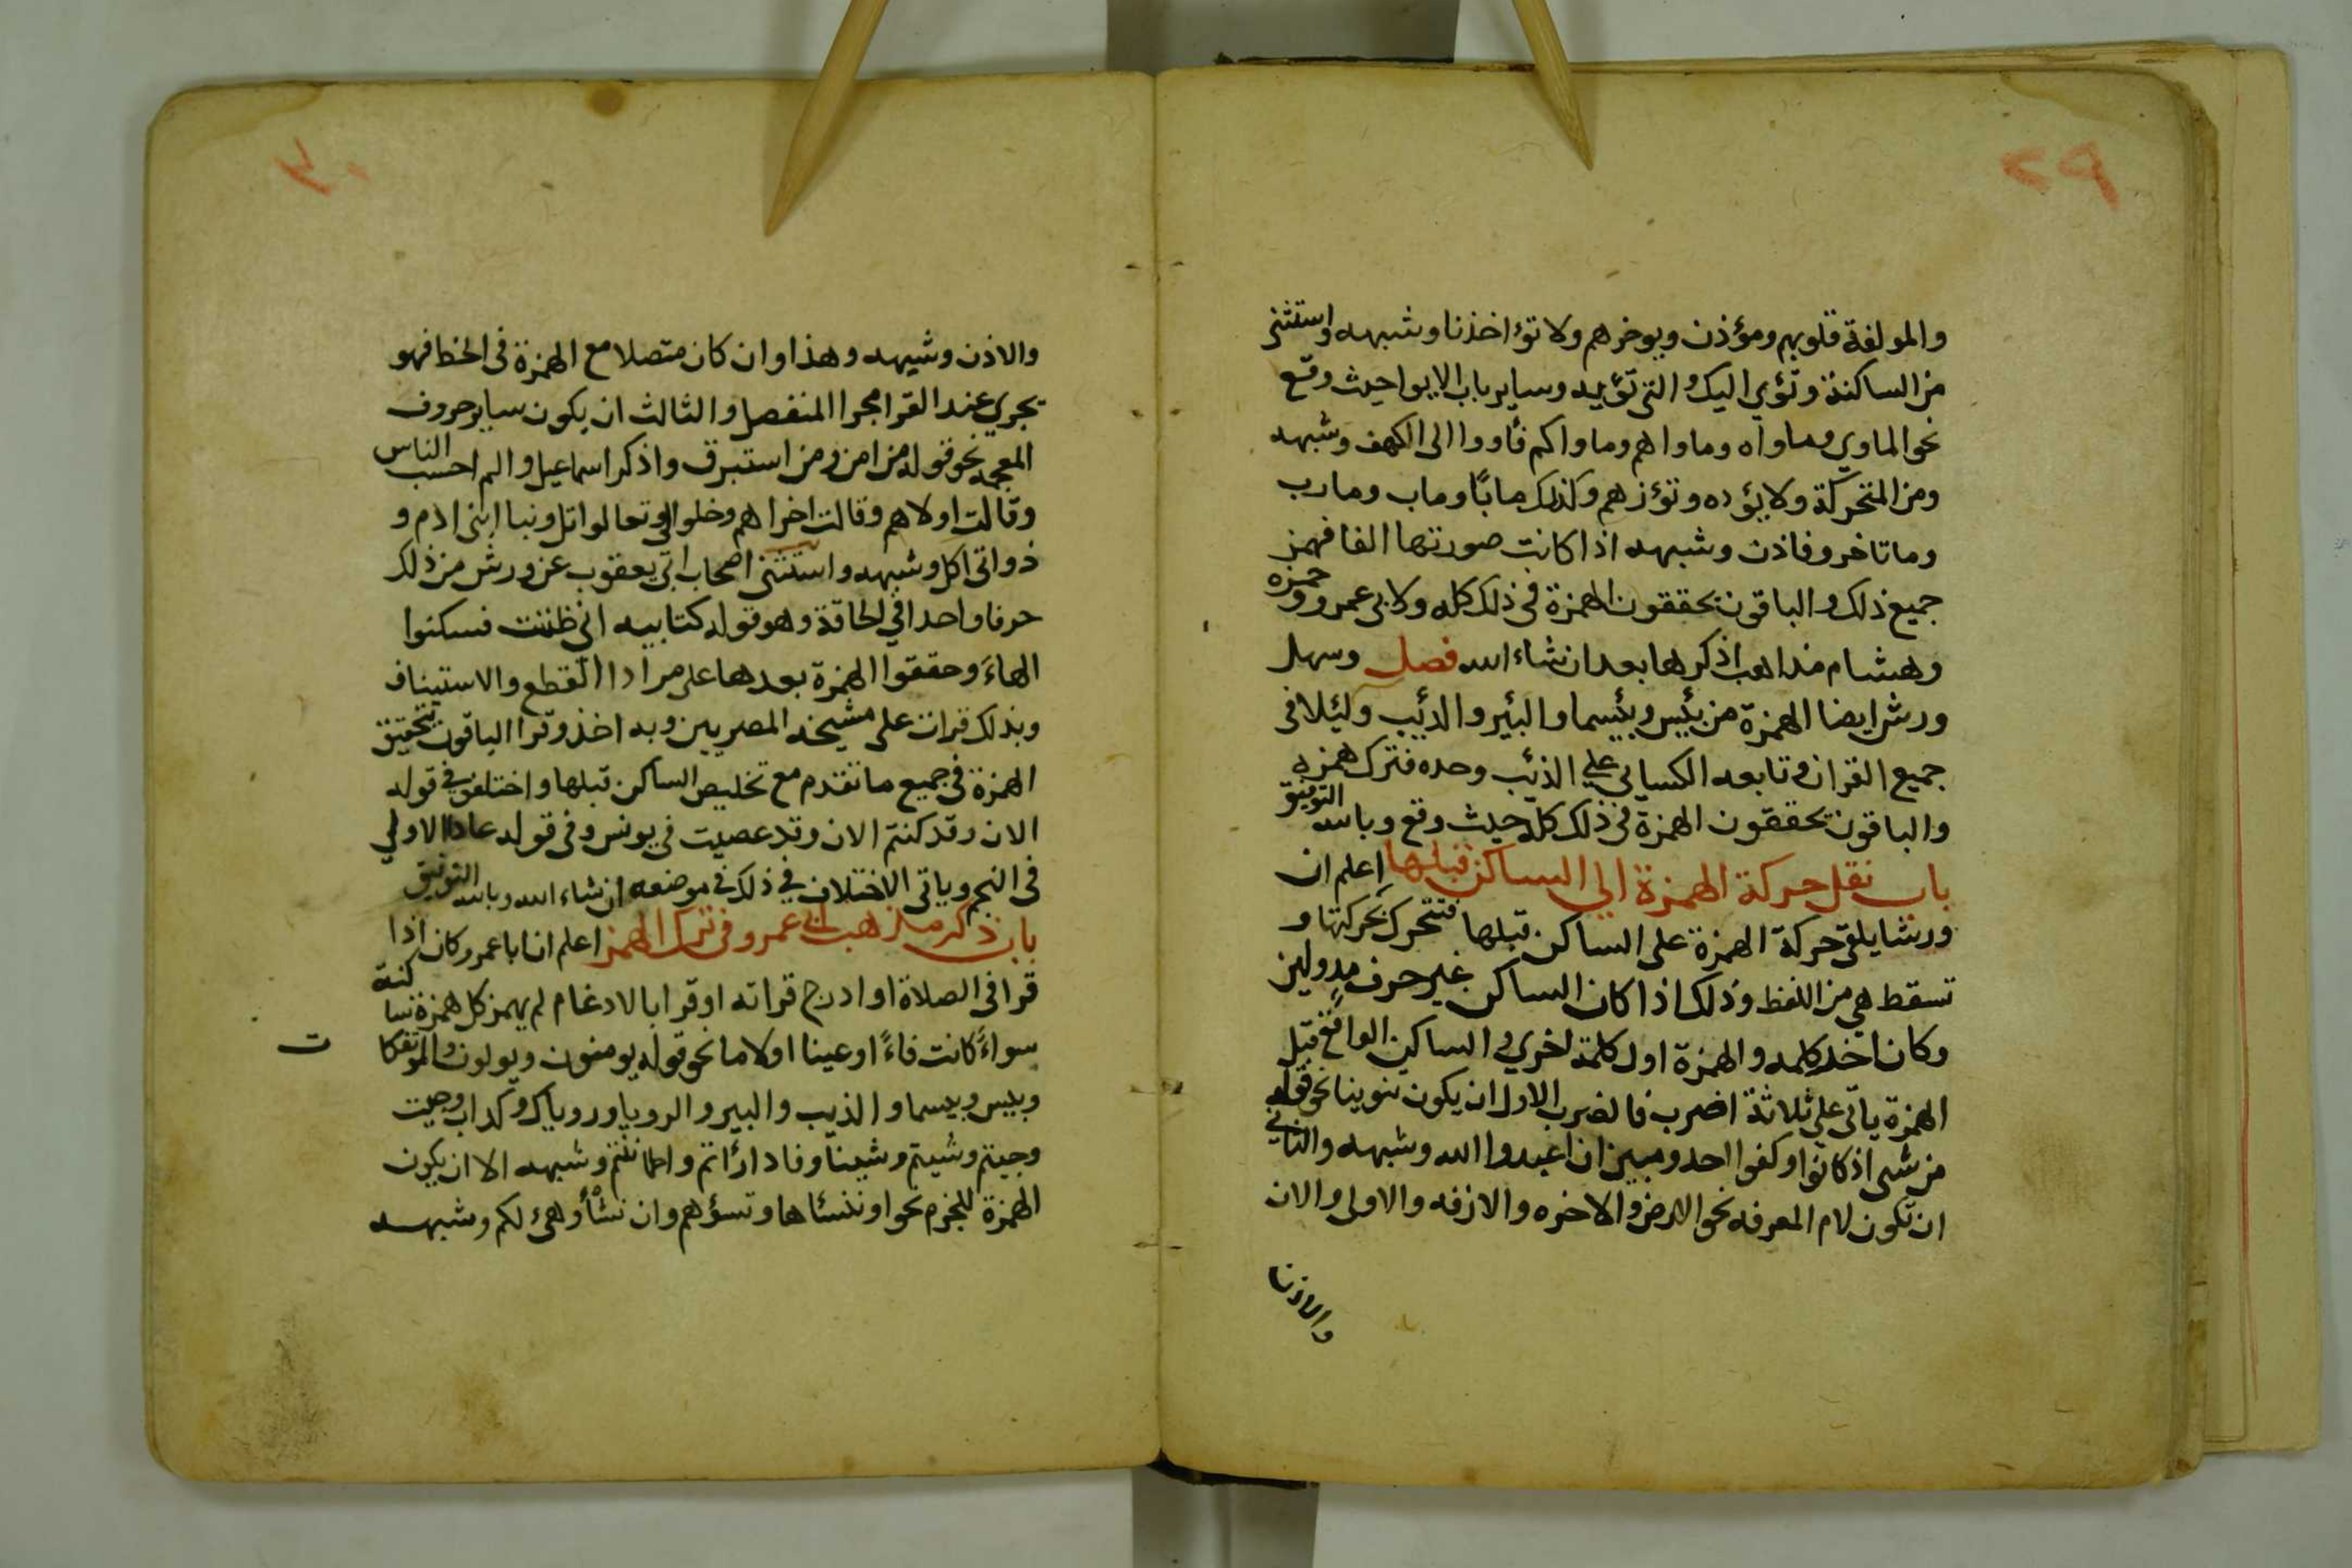 ٢٩
والمولفة قلوبهم ومؤذن ويوخرهم ولا تؤاخذنا وشبهه واستثنى
من الساكنة وتؤي اليك والتي تؤيه وساير باب الايوا حيث وقع
نحو الماوي وماواه وماواهم وماواكم فأووا الى الكهف وشبهه
ومن المتحركة ولا يؤده وتؤزهم وكذلك مابًا وماب ومارب
وما تاخر وفاذن وشبهه اذا كانت صورتها الفا فهمز
جميع ذلك والباقون يحققون الهمزة في ذلك كله ولابي عمرو وحمزه
وهشام مذاهب اذكرها بعد ان شاء الله فصل وسهل
ورش ايضا الهمزة من بئيس وبئيسما والبئير والذئيب ولئيلا في
جميع القران وتابعه الكسائي علي الذئب وحده فترك همزه
والباقون يحققون الهمزة في ذلك كله حيث وقع وبالله التوفيق
باب نقل حركة الهمزة الي الساكن قبلها اعلم ان
ورشا يلقي حركة الهمزة على الساكن قبلها فتتحرك بحركتها و
تسقط هي من اللفظ وذلك اذا كان الساكن غير حرف مد ولين
وكان اخر كلمه والهمزة اول كلمة اخري والساكن الواقع قبل
الهمزة ياتي علي ثلاثة اضرب فالضرب الاول ان يكون تنوينا نحو قوله
من شى اذ كانوا وكفوا احد ومبين ان اعبدوا الله وشبهه والثاني
ان تكون لام المعرفه نحو الارض والاخره والازفه والاولى والان
والاذن
٣٠
والاذن وشبهه وهذا وان كان متصلا مع الهمزة في الخط فهو
يجري عند القرا مجرا المنفصل والثالث ان يكون ساير حروف
المعجمه نحو قوله من امن ومن استبرق واذكر اسماعيل والم احسب الناس
وقالت اولاهم وقالت اخراهم وخلوا الى وتعالوا اتل ونبا ابنى ادم و
ذواتى اكل وشبهه واستثنى اصحاب ابي يعقوب عن ورش من ذلك
حرفا واحدا في الحاقة وهو قوله كتابيه انى ظننت فسكنوا
الهاءَ وحققوا الهمزة بعدها على مراد القطع والاستيناف
وبذلك قرات على مشيخه المصريين وبه اخذ وقرا الباقون بتحقيق
الهمزة في جميع ما تقدم مع تخليص الساكن قبلها واختلفو في قوله
الان وقد كنتم الان وقد عصيت في يونس وفي قوله عادا الاولي
في النجم وياتى الاختلاف في ذلك في موضعه ان شاء الله وبالله التوفيق
باب ذكر مذهب ابى عمرو في ترك الهمز اعلم ان ابا عمرو كان اذا
قرا في الصلاة او ادرج قراته او قرا بالادغام لم يهمز كل همزة ساكنة
سواءً كانت فاءً او عينا او لاما نحو قوله يومنون ويولون والموتفكا
ت
وبيس وبيسما والذيب والبير والرويا وروياك وكداب وجيت
وجيتم وشيتم وشينا وفادارئاتم واطماننتم وشبهه الا ان يكون
الهمزة للجزم نحو او ننسئاها وتسؤهم وان نشأ وهيئ لكم وشبهه